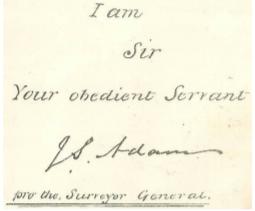 I am
Sir
Your obedient Servant
J. S. Adam
pro the. Surveyor General.